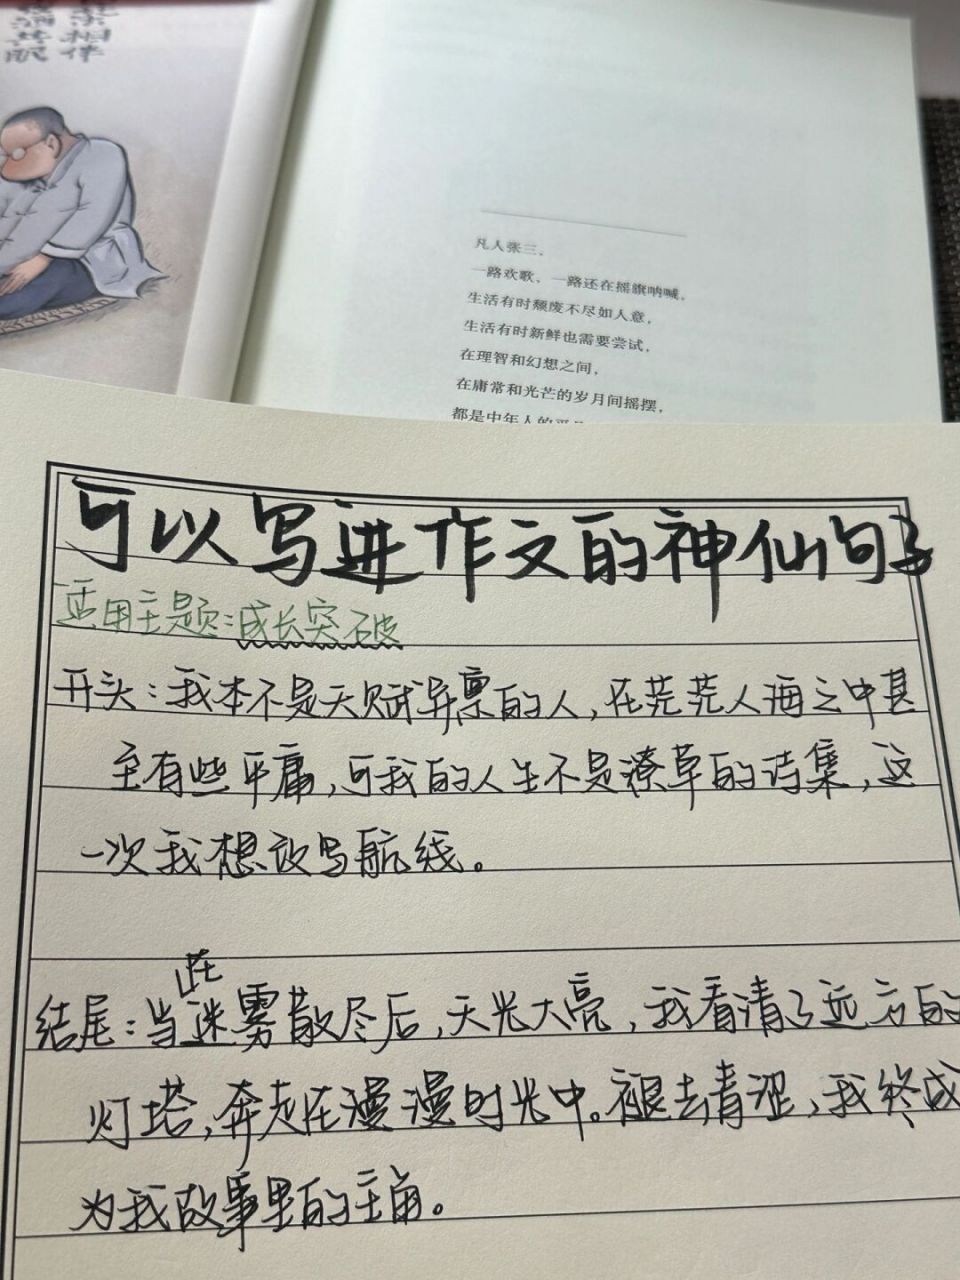 相伴
凡人张三、
一路欢歌、一路还在摇旗呐喊，
生活有时颓废不尽如人意，
生活有时新鲜也需要尝试，
在理智和幻想之间，
在庸常和光芒的岁月间摇摆，
都是中年人的
可以写进作文的神仙句子
适用主题：成长突破
开头：我本不是天赋异禀的人，在茫茫人海之中甚
至有些平庸，可我的人生不是潦草的诗集，这
一次我想改写航线。
在
结尾：当迷雾散尽后，天光大亮，我看清了远方的
灯塔，奔走在漫漫时光中。褪去青涩，我终成
为我故事里的主角。